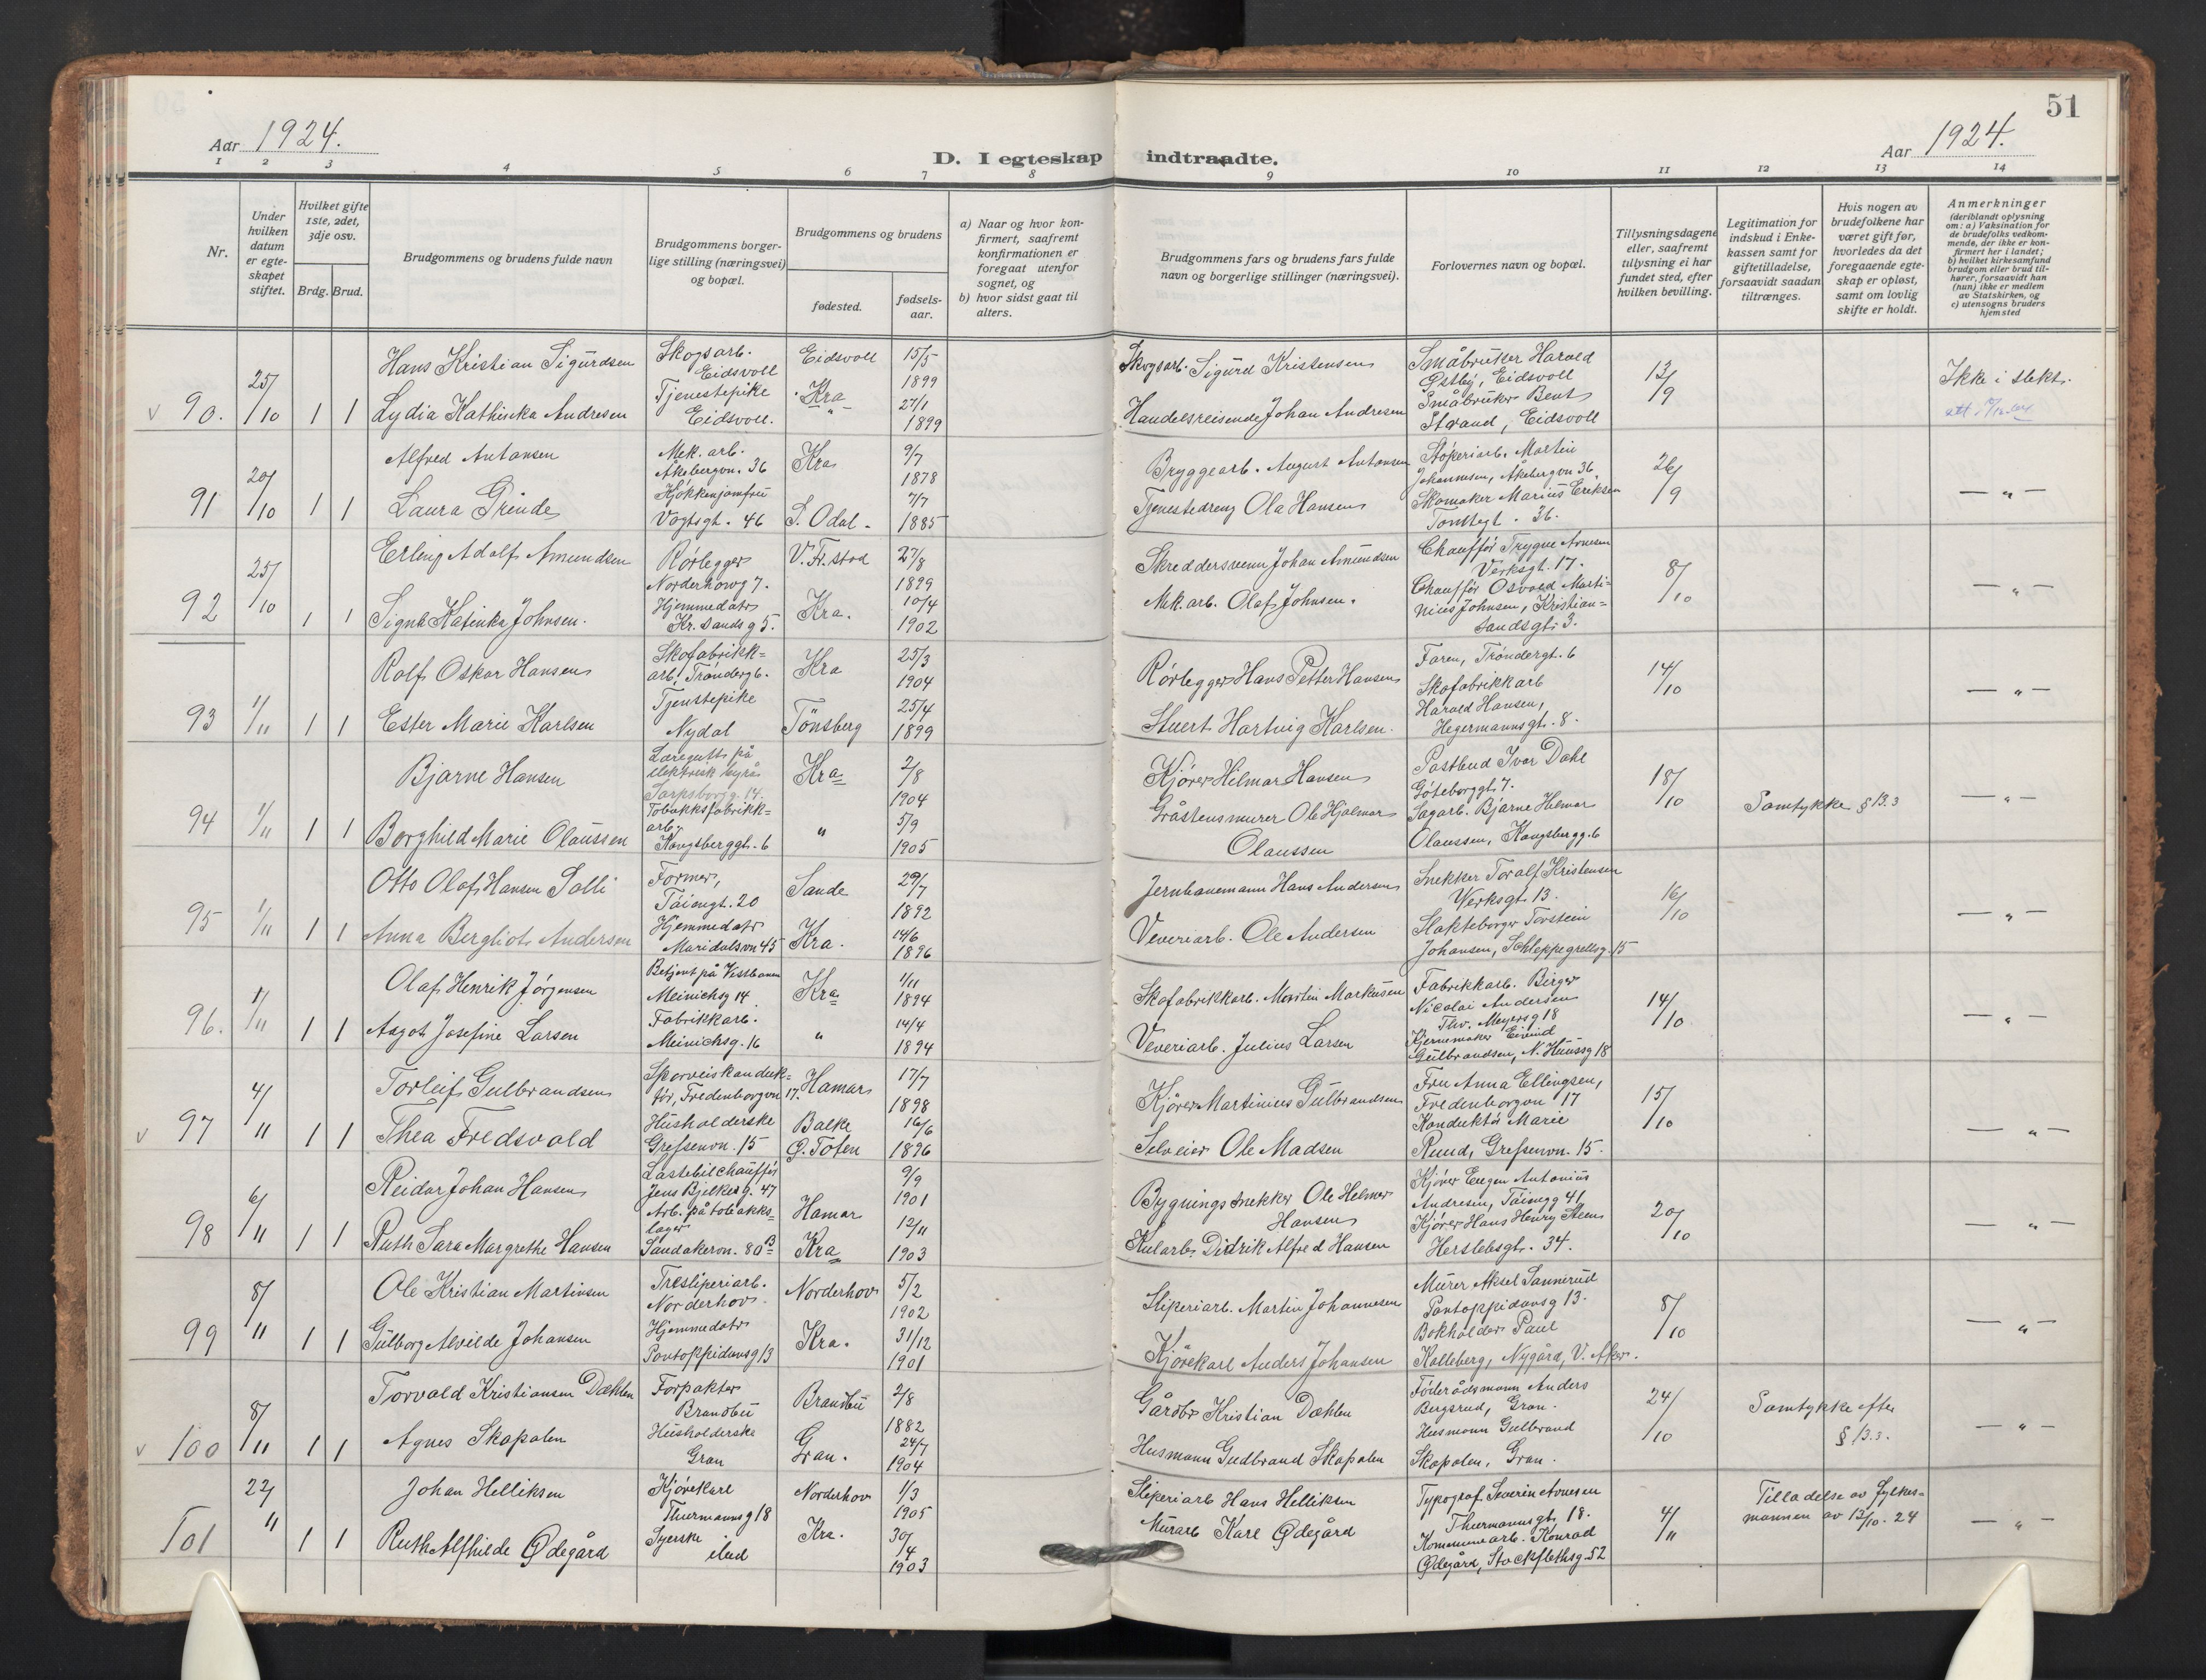 51
Aar 1924.
D. I egteskap indtraadte.
Aar 1924.
1 2 3 4 5 6 7 8 9 10 11 12 13 14
Nr.
Under hvilken datum er egteskapet stiftet.
Hvilket gifte 1ste, 2det, 3dje osv.
Brdg. Brud.
Brudgommens og brudens fulde navn
Brudgommens borgerlige stilling (næringsvei) og bopæl.
Brudgommens og brudens
fødested.
fødselsaar.
a) Naar og hvor konfirmert, saafremt konfirmationen er foregaat utenfor sognet, og
b) hvor sidst gaat til alters.
Brudgommens fars og brudens fars fulde navn og borgerlige stillinger (næringsvei).
Forlovernes navn og bopæl.
Tillysningsdagene eller, saafremt tillysning ei har fundet sted, efter hvilken bevilling.
Legitimation for indskud i Enkekassen samt for giftetilladelse, forsaavidt saadan tiltrænges.
Hvis nogen av brudefolkene har været gift før, hvorledes da det foregaaende egteskap er opløst, samt om lovlig skifte er holdt.
Anmerkninger
(deriblandt oplysning om: a) Vaksination for de brudefolks vedkommende, der ikke er konfirmert her i landet; b) hvilket kirkesamfund brudgom eller brud tilhører, forsaavidt han (hun) ikke er medlem av Statskirken, og c) utensogns bruders hjemsted
v 90. 25/10 1 1
Hans Kristian Sigurdsen Skogsarb. Eidsvoll Eidsvoll 15/5 1899 Skogsarb. Sigurd Kristensen Småbruker Harald Østby, Eidsvoll 13/9 Ikke i slekt.
Lydia Kathinka Andresen Tjenestepike Eidsvoll. Kra 27/1 1899 Handelsreisende Johan Andresen Småbruker Bent Strand, Eidsvoll
91 20/10 1 1
Alfred Antonsen Mek. arb. Åkebergvn. 36 Kra 9/7 1878 Bryggearb. August Antonsen Støperiarb. Martin Johannesen, Åkebergvn 36. 26/9 — " —
Laura Grinde Kjøkkenjomfru Vogtsgt. 46 S. Odal 7/7 1885 Tjenestedreng Ola Hansen Skomaker Marius Eriksen Tofttegt. 36.
92 25/10 1 1
Erling Adolf Amundsen Rørlegger Norderhovg 7. V. Fr.stad 27/8 1899 Skreddersvenn Johan Amundsen Chauffør Trygve Arnesen Verksgt. 17. 8/10 — " —
Signe Katinka Johnsen. Hjemmedatr Kr. sandsg 5. Kra. 10/4 1902 Mek. arb. Olaf Johnsen. Chauffør Osvald Martinius Johnsen, Kristiansandsgt. 3.
93 1/11 1 1
Rolf Oskar Hansen Skofabrikkarb. Trøndergt. Kra 25/3 1904 Rørlegger Hans Petter Hansen Faren, Trøndergt. 6 14/10 — " —
Ester Marie Karlsen Tjenstepike Nydal Tönsberg 25/4 1899 Stuert Hartvig Karlsen. Skofabrikkarb Harald Hansen, Hegermannsgt. 8.
94 1/11 1 1
Bjarne Hansen Læregutt på elektrisk byrå Sarpsborgg. 14. Kra 2/8 1904 Kjører Hilmar Hansen Postbud Ivar Dahl Göteborggt. 7. 18/10 Samtykke § 13.3 — " —
Borghild Marie Olaussen Tobakksfabrikkarb. Kongsberggt. 6 " 5/9 1905 Gråstensmurer Ole Hjalmar Olaussen Sagarb. Bjarne Helmer Olaussen, Kongsbergg. 6
95 1/11 1 1
Otto Olaf Hansen Solli Former, Töiengt. 20 Sande 29/7 1892 Jernbanemann Hans Andersen Snekker Toralf Kristensen Verksgt. 13. 16/10 — " —
Anna Bergliot Andersen Hjemmedatr Maridalsvn 45 Kra. 14/6 1896 Veveriarb. Ole Andersen Slakteborger Torstein Johansen, Schleppegrellsg. 15
96. 1/11 1 1
Olaf Henrik Jørgensen Betjent på Vestbanen Meinichsg 14 Kra 1/11 1894 Skofabrikkarb. Martin Markusen Fabrikkarb. Birger Nicolai Andersen Thv. Meyersg 18 14/10 — " —
Aagot Josefine Larsen Fabrikkarb. Meinichsg. 16 " 14/4 1894 Veveriarb. Julius Larsen Kjernemaker Eivind Gulbrandsen, N. Huusg 18
v 97 4/11 1 1
Torleif Gulbrandsen Sporveiskonduktør, Fredenborgvn 17. Hamar 17/7 1898 Kjører Martinius Gulbrandsen Fru Anna Ellingsen, Fredenborgvn 17 15/10 — " —
Thea Fredsvold Husholderske Grefsenvn. 15 Balke Ø. Toten 16/6 1896 Selveier Ole Madsen Konduktör Marie Ruud, Grefsenvn. 15.
98 6/11 1 1
Reidar Johan Hansen Lastebilchauffør Jens Bjelkes g. 47 Hamar 9/9 1901 Bygningssnekker Ole Helmer Hansen Kjører Eugen Antonius Andresen, Töieng 41 20/10 — " —
Ruth Sara Margrethe Hansen Arb. på tobakkslager Sandakervn. 80B Kra 12/11 1903 Kularb. Didrik Alfred Hansen Kjører Hans Henry Steen Herslebsgt. 34.
99 8/11 1 1
Ole Kristian Martinsen Tresliperiarb. Norderhov. Norderhov 5/2 1902 Sliperiarb. Martin Johannesen Murer Aksel Sannerud Pontoppidansg 13. 8/10 — " —
Gulborg Alvilde Johansen Hjemmedatr Pontoppidansg 13 Kra. 31/12 1901 Kjørekarl Anders Johansen Bokholder Paul Kalleberg, Nygård, V. Aker.
v 100 8/11 1 1
Torvald Kristiansen Dæhlen Forpakter Brandbu Brandbu 2/8 1882 Gårdbr Kristian Dæhlen Føderådsmann Anders Bergsrud, Gran. 24/10 Samtykke efter § 13.3. — " —
Agnes Skapalen Husholderske Gran Gran. 24/7 1904 Husmann Gudbrand Skapalen Husmann Gulbrand Skapalen, Gran.
101 22/11 1 1
Johan Helliksen Kjørekarl Thurmannsg 18 Norderhov 1/3 1905 Sliperiarb Hans Helliksen Typograf Severin Arnesen Thurmannsgt. 18. 4/11 Tilladelse av fylkesmannen av 13/10. 24 — " —
Ruth Alfhilde Ødegård Syerske ibid Kra. 30/4 1903 Murarb Karl Ødegård Kommunearb. Konrad Ødegård, Stockflethsg. 52